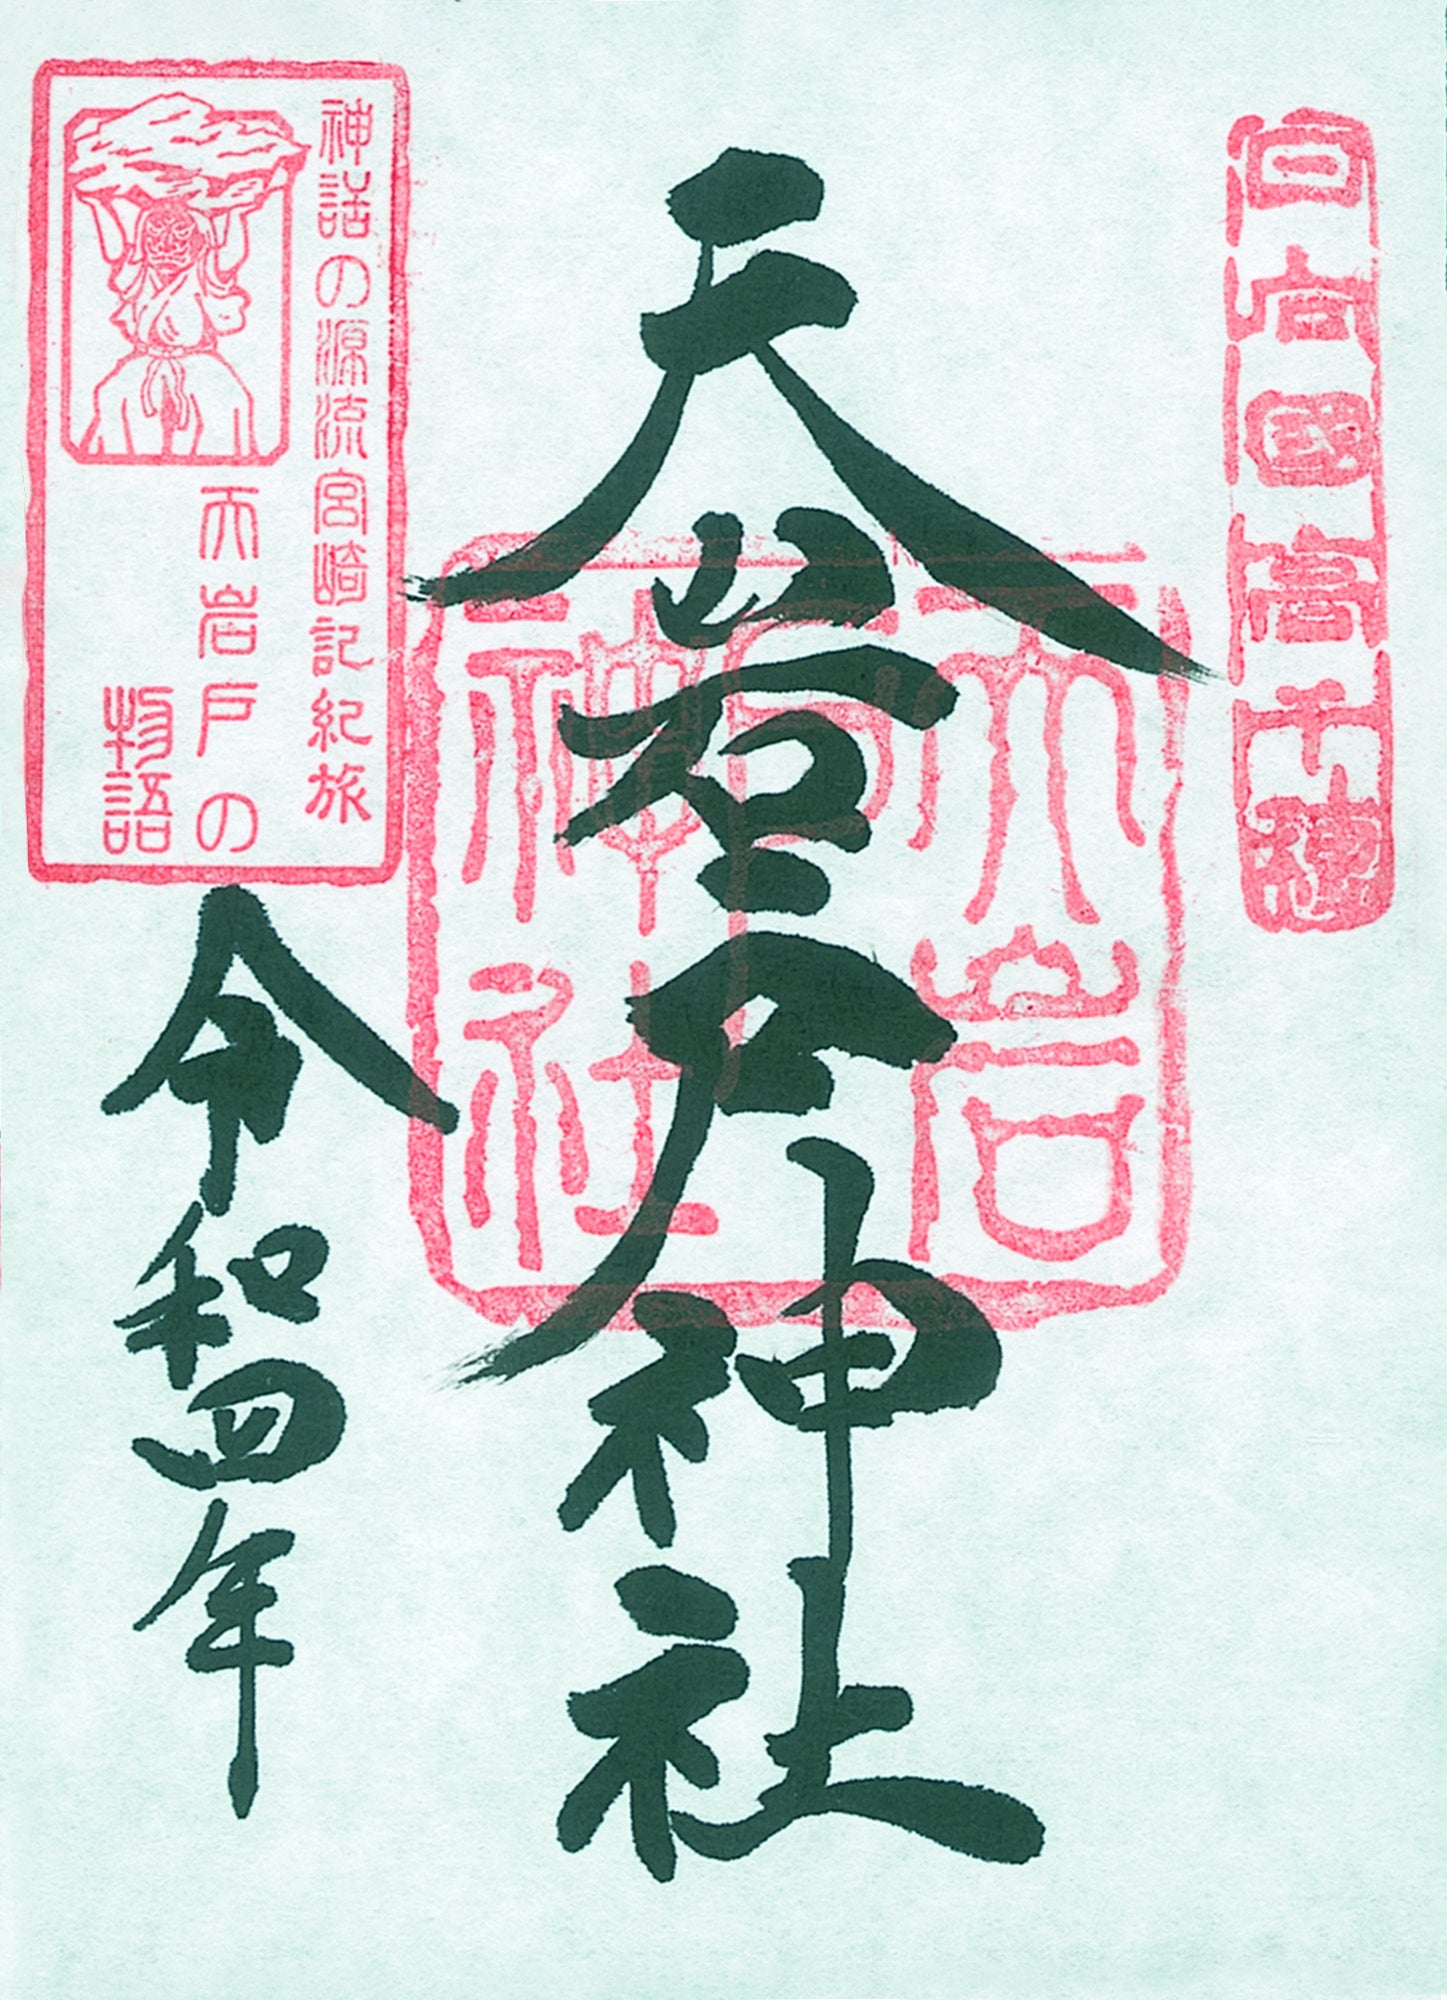 日向國高千穂
天岩戸神社
天岩戸神社
神話の源流宮崎記紀旅
天岩戸の
物語
令和四年